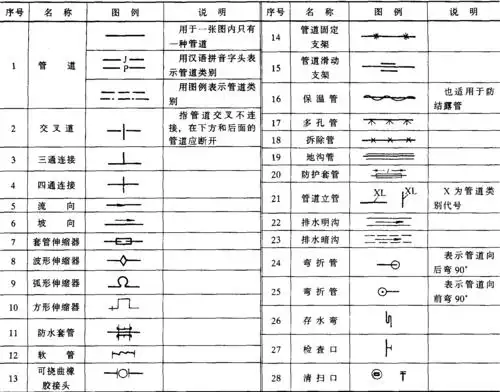 序号 名 称 图 例 说 明
1 管 道 用于一张图内只有
一种管道
J
P
用汉语拼音字头表
示管道类别
用图例表示管道类
别
2 交 叉 道 指管道交叉不连
接，在下方和后面的
管道应断开
3 三通连接
4 四通连接
5 流 向
6 坡 向
7 套管伸缩器
8 波形伸缩器
9 弧形伸缩器
10 方形伸缩器
11 防水套管
12 软 管
13 可挠曲橡
胶接头
序号 名 称 图 例 说 明
14 管道固定
支架
15 管道滑动
支架
16 保 温 管 也适用于防
结露管
17 多 孔 管
18 拆 除 管
19 地 沟 管
20 防护套管
21 管道立管 XL XL X 为管道类
别代号
22 排水明沟
23 排水暗沟
24 弯 折 管 表示管道向
后弯 90°
25 弯 折 管 表示管道向
前弯 90°
26 存 水 弯
27 检 查 口
28 清 扫 口